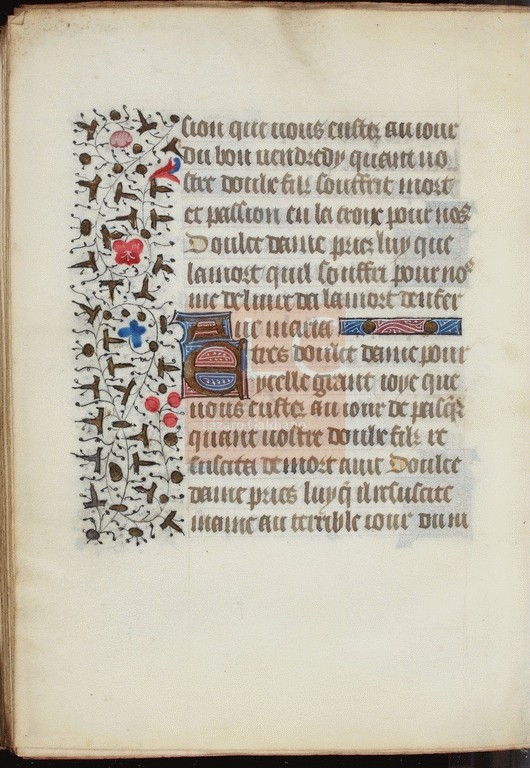 sion que vous eustes au iour
du bon vendredy quant vo
stre doulx filz souffrit mort
et passion en la croix pour nos
Doulce dame priez luy que
la mort quil souffri pour no9
me deliure de la mort denfer
Aue maria
E tres doulce dame pour
ycelle grant ioye que
vous eustes au iour de pasqs
quant vostre doulx filz re
suscita de mort a vie Doulce
dame pries luy q̃ il resuscite
mame au terrible iour du iu
Lázaro Galdiano